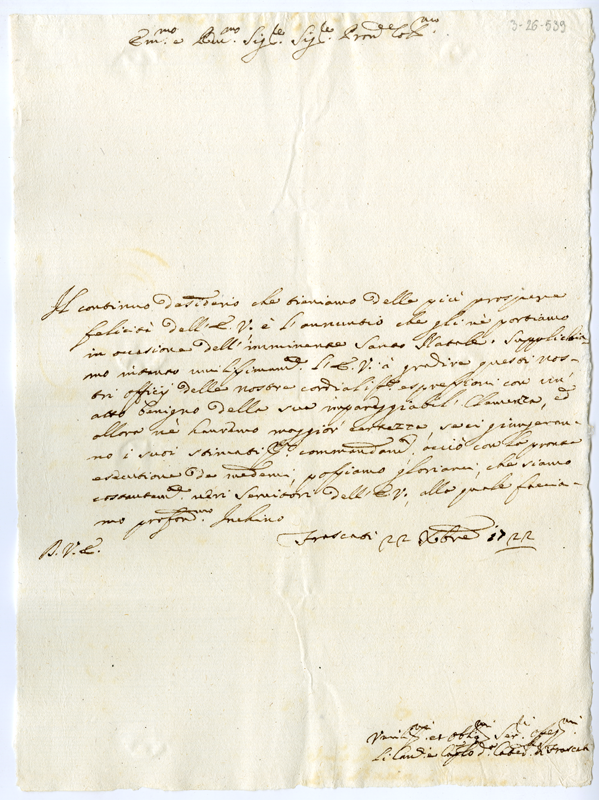 3-26-539
Em.mo e Rev.mo Sig.re Sig.re Pron.e Col.mo
Il continuo desiderio che teniamo delle più prospere
felicità dell'E. V. è l'annuntio che gli nè portiamo
in occasione dell'imminente Santo Natale. Supplichia-
mo intanto umilissimam.te l'E. V. à gradire questi nos-
tri officij delle nostre cordialiss.e espressioni con un'
atto benigno della sua impareggiabil' Clemenza, ed
allora nè hauremo maggior certezza, se ci giungeran-
no i suoi stimatiss.i commandam.ti, acciò con la pronta
esecutione de medemi, possiamo gloriarci, che siamo
costantem.te veri servitori dell'E. V., alla quale faccia-
mo profon.mo Inchino
Frascati 22 Xbre 1722
D. V. E.
Umil.mi et Obblig.mi Ser.ri
Li Can.ci e Cap.lo d. Cated. di Frascati